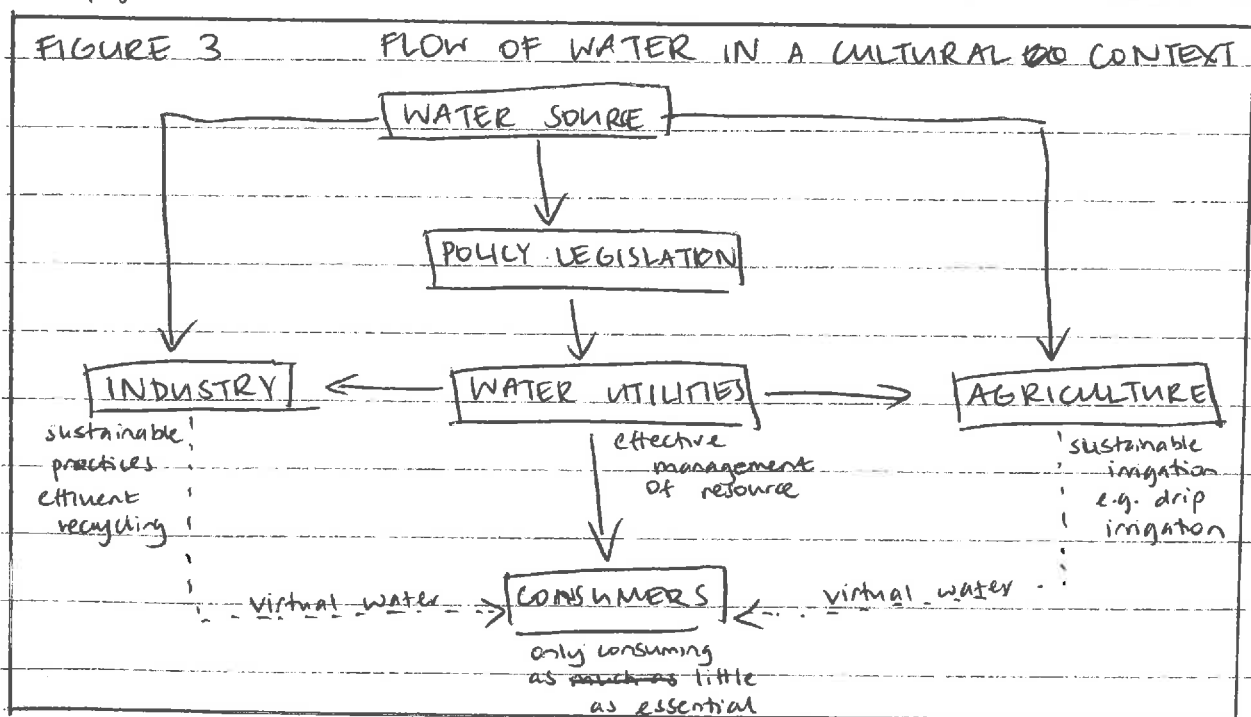 FIGURE 3 FLOW OF WATER IN A CULTURAL CONTEXT
WATER SOURCE
POLICY LEGISLATION
INDUSTRY
WATER UTILITIES
AGRICULTURE
sustainable
practices
effluent
recycling
effective
management
of resource
sustainable
irrigation
e.g. drip
irrigation
virtual water
CONSUMERS
virtual water
only consuming
as much as little
as essential